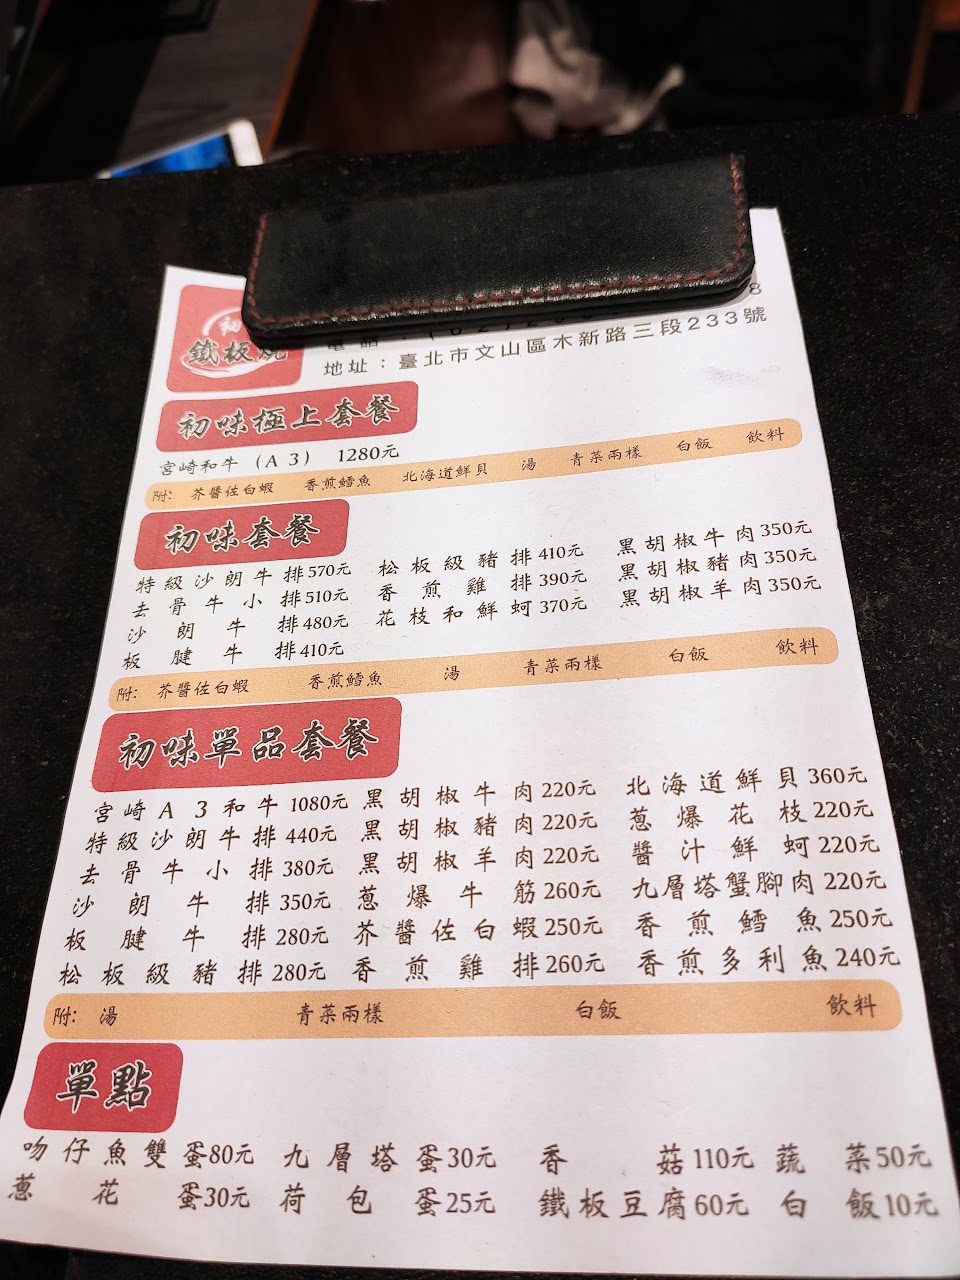 初
鐵板燒
地址：臺北市文山區木新路三段233號
初味極上套餐
宮崎和牛（A3） 1280元
附: 芥醬佐白蝦 香煎鱈魚 北海道鮮貝 湯 青菜兩樣 白飯 飲料
初味套餐
特級沙朗牛排570元 松板級豬排410元 黑胡椒牛肉350元
去骨牛小排510元 香煎雞排390元 黑胡椒豬肉350元
沙朗牛排480元 花枝和鮮蚵370元 黑胡椒羊肉350元
板腱牛排410元
附: 芥醬佐白蝦 香煎鱈魚 湯 青菜兩樣 白飯 飲料
初味單品套餐
宮崎A3和牛1080元 黑胡椒牛肉220元 北海道鮮貝360元
特級沙朗牛排440元 黑胡椒豬肉220元 蔥爆花枝220元
去骨牛小排380元 黑胡椒羊肉220元 醬汁鮮蚵220元
沙朗牛排350元 蔥爆牛筋260元 九層塔蟹腳肉220元
板腱牛排280元 芥醬佐白蝦250元 香煎鱈魚250元
松板級豬排280元 香煎雞排260元 香煎多利魚240元
附: 湯 青菜兩樣 白飯 飲料
單點
吻仔魚雙蛋80元 九層塔蛋30元 香菇110元 蔬菜50元
蔥花蛋30元 荷包蛋25元 鐵板豆腐60元 白飯10元